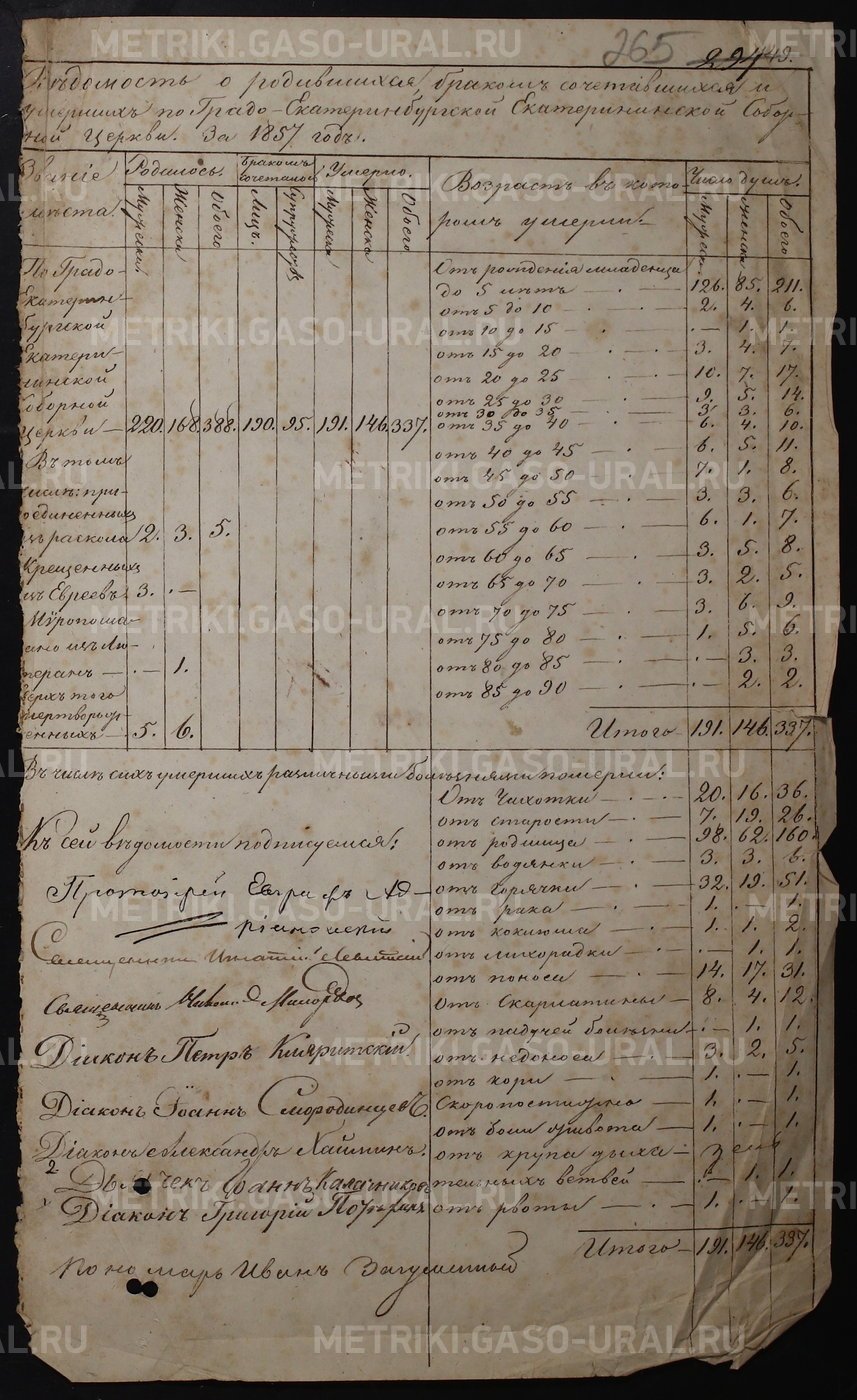 265 294 49.
Вѣдомость о родившихся, бракомъ сочетавшихся и
умершихъ по Градо-Екатеринбургской Екатерининской Собор-
ной церкви. За 1857 годъ.
Званіе мѣста. Родилось. Бракомъ сочетано. Умерло. Возрастъ въ кото- ромъ умерли. Число душъ.
Мужеска. Женска. Обоего Лицъ. Супружествъ Мужеска Женска Обоего Мужеска. Женска. Обоего
По Градо-
Екатерин-
бургской
Екатери-
нинской
Соборной
церкви — 220. 168. 388. 190. 95. 191. 146. 337.
Въ томъ
числѣ: при-
соединенныхъ
изъ раскола 2. 3. 5.
Крещенныхъ
изъ Евреевъ 3. —
Мѵропома-
зано изъ Лю-
теранъ — .— 1.
Сверхъ того
мертворож-
денныхъ — 5. 6.
Отъ рожденія младенца
до 5 лѣтъ — 126. 85. 211.
отъ 5 до 10 — 2. 4. 6.
отъ 10 до 15 — .— 1. 1.
отъ 15 до 20 — 3. 4. 7.
отъ 20 до 25 — 10. 7. 17.
отъ 25 до 30 — 9. 5. 14.
отъ 30 до 35 — 3. 3. 6.
отъ 35 до 40 — 6. 4. 10.
отъ 40 до 45 — 6. 5. 11.
отъ 45 до 50 — 7. 1. 8.
отъ 50 до 55 — 3. 3. 6.
отъ 55 до 60 — 6. 1. 7.
отъ 60 до 65 — 3. 5. 8.
отъ 65 до 70 — 3. 2. 5.
отъ 70 до 75 — 3. 6. 9.
отъ 75 до 80 — 1. 5. 6.
отъ 80 до 85 — .— 3. 3.
отъ 85 до 90 — .— 2. 2.
Итого — 191. 146. 337.
Въ числѣ сихъ умершихъ различными болѣзнями померли:
Отъ Чахотки — 20. 16. 36.
отъ старости — 7. 19. 26.
отъ родимца — 98. 62. 160.
отъ водянки — 3. 3. 6.
отъ горячки — 32. 19. 51.
отъ рака — 1. .— 1.
отъ коклюша — 1. 1. 2.
отъ лихорадки — .— 1. 1.
отъ поноса — 14. 17. 31.
Отъ Скарлатины — 8. 4. 12.
отъ падучей болѣзни .— 1. 1.
отъ недоноса — 3. 2. 5.
отъ кори — 1. — 1.
Скоропостижно — 1. — 1.
отъ боли живота — 1. — 1.
отъ крупа дыха-
тельныхъ ветвей — 1. 1.
отъ рвоты — 1. — 1.
Итого — 191. 146. 337.
Къ сей вѣдомости подписуемся:
Протоіерей Евграфъ Ад-
ріановскій
Священникъ Игнатій Левитскій
Священникъ
Діаконъ Петръ
Діаконъ Іоаннъ Смородинцевъ
Діаконъ Александръ
2 Дьячекъ Іоаннъ Калачников
Діаконъ Григорій
Кономарь Иванъ
METRIKI.GASO-URAL.RU